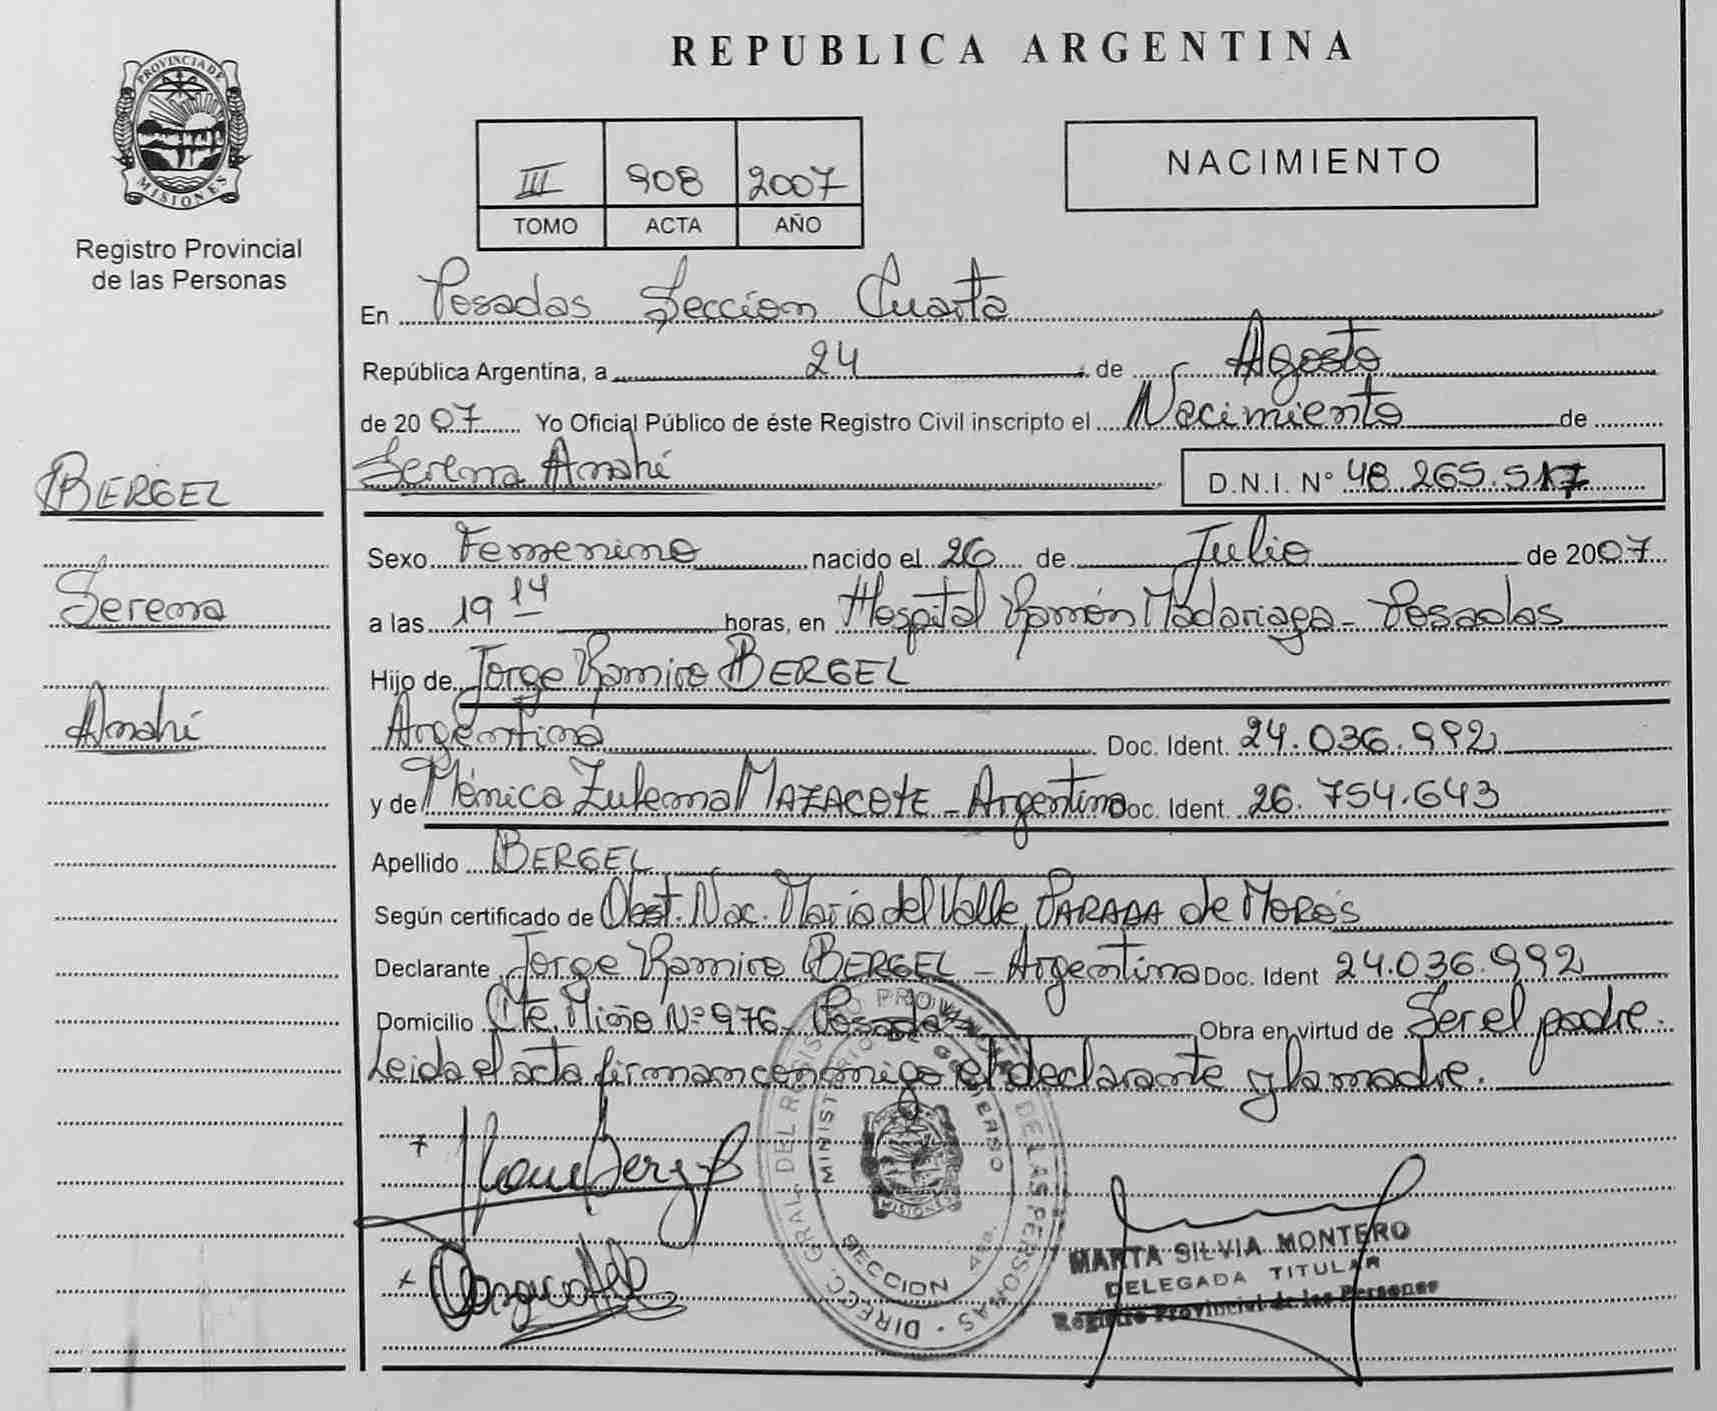 REPUBLICA ARGENTINA
PROVINCIA DE
MISIONES
Registro Provincial
de las Personas
III 908 2007
TOMO ACTA AÑO
NACIMIENTO
En Posadas Sección Cuarta
República Argentina, a 24 de Agosto
de 2007 Yo Oficial Público de éste Registro Civil inscripto el Nacimiento de
Serena Anahí D.N.I. Nº 48.265.517
BERGEL
Serena
Anahí
Sexo Femenino nacido el 26 de Julio de 2007
a las 19 14 horas, en Hospital Ramón Madariaga - Posadas
Hijo de Jorge Ramiro BERGEL
Argentina Doc. Ident. 24.036.992
y de Mónica Zulema MAZACOTE - Argentina Doc. Ident. 26.754.643
Apellido BERGEL
Según certificado de Obst. Nac. María del Valle PARADA de MOROS
Declarante Jorge Ramiro BERGEL - Argentina Doc. Ident 24.036.992
Domicilio Cte. Miño Nº 976 - Posadas Obra en virtud de Ser el padre.
Leida el acta firman conmigo el declarante y la madre.
DIRECC. GRAL. DEL REGISTRO PROVINCIAL DE LAS PERSONAS
MINISTERIO DE GOBIERNO
SECCION 4ta.
MISIONES
MARTA SILVIA MONTERO
DELEGADA TITULAR
Registro Provincial de las Personas